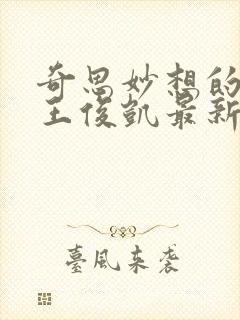 奇思妙想的
王俊凯最新
臺風来袭